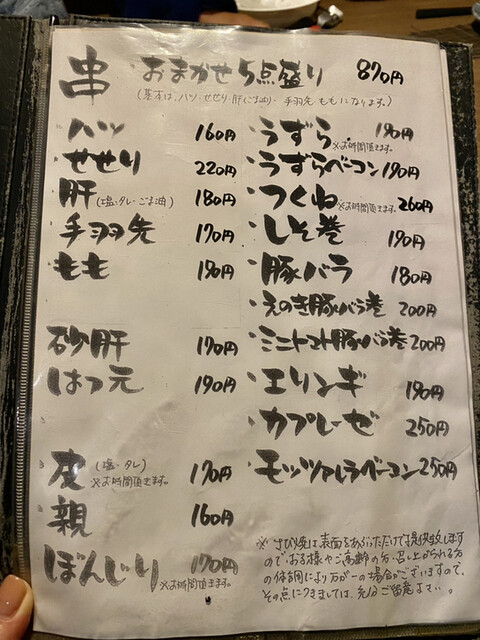 串 おまかせ5点盛り 870円
(基本は、ハツ・せせり・肝(ごま油)・手羽先・ももになります。)
ハツ 160円
せせり 220円
肝(塩・タレ・ごま油) 180円
手羽先 170円
もも 190円
砂肝 170円
はつ元 190円
皮(塩・タレ) 170円
※お時間頂きます。
親 160円
ぼんじり 170円
※お時間頂きます。
・うずら 190円
※お時間頂きます。
・うずらベーコン 190円
・つくね ※お時間頂きます。 260円
・しそ巻 190円
・豚バラ 180円
・えのき豚バラ巻 200円
・ミニトマト豚バラ巻 200円
・エリンギ 190円
・カプレーゼ 250円
・モッツァレラベーコン 250円
※さび焼は表面をあぶっただけで提供致します
ので、お子様やご高齢の方、召し上がられる方
の体調により万が一の場合がございますので、
その点につきましては、充分ご留意下さい。